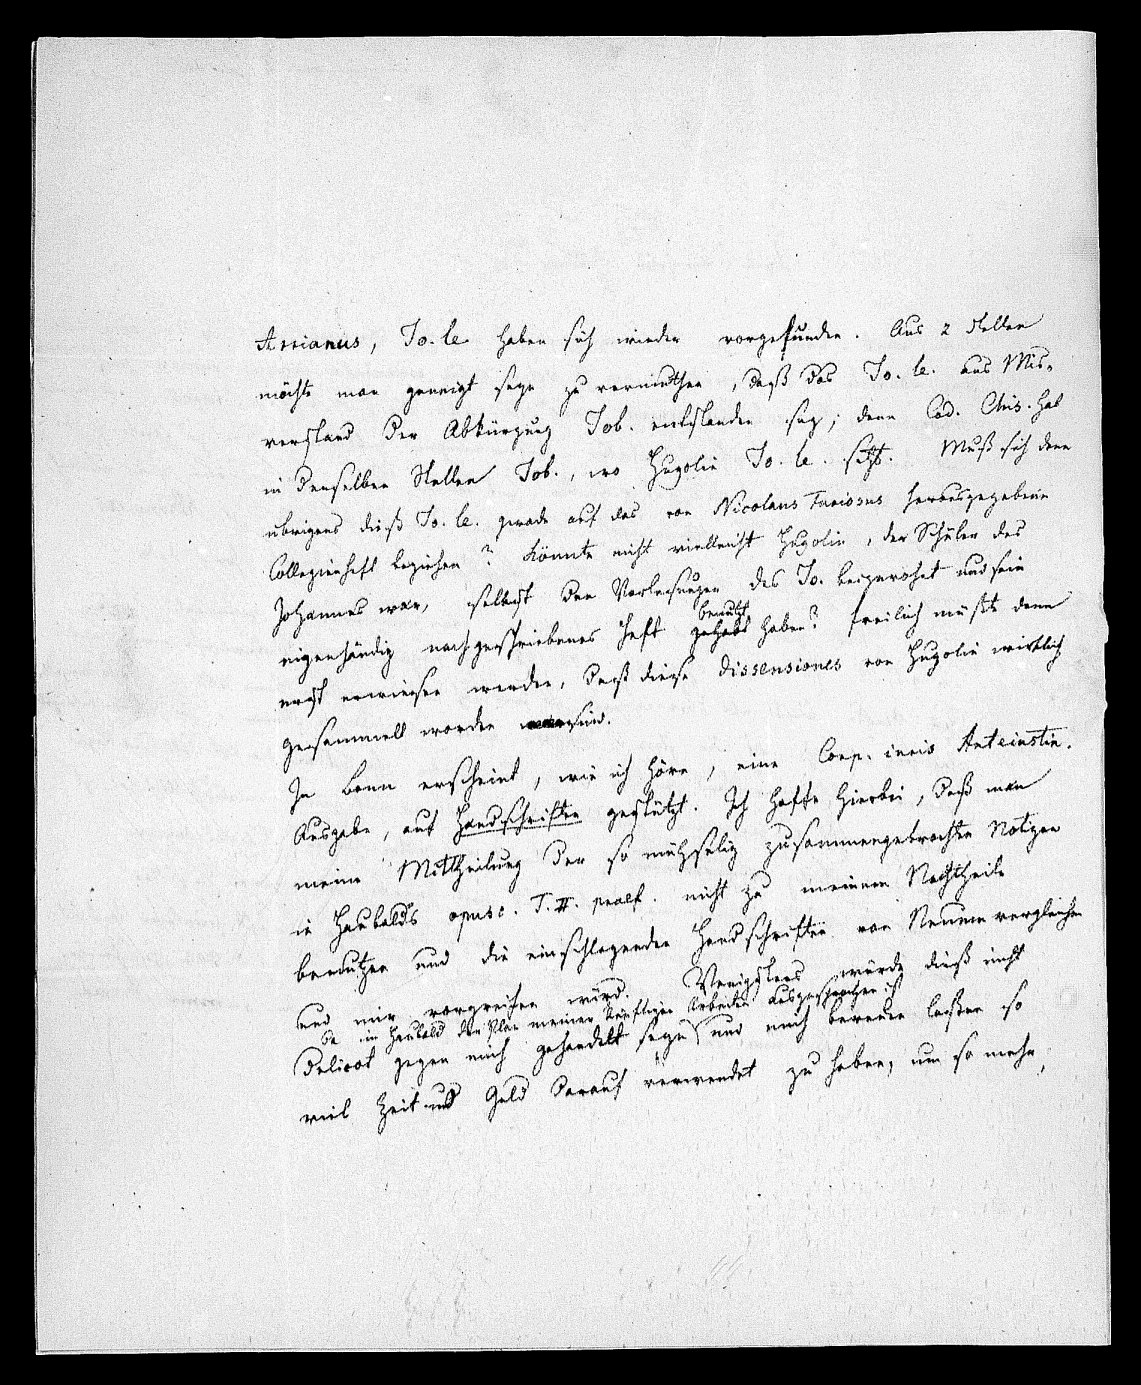 Arrianus, Jo. le. haben sich wieder vorgefunden. Aus 2 Stellen
möchte man geneigt seyn zu vermuthen, daß das Jo. le. aus Mis-
verstand der Abkürzung Job. entstanden sey; denn Cod. Chis. hat
in denselben Stellen Job., wo Hugolin Jo. le. setzt. Muß sich denn
übrigens dieß Jo. le. gerade auf das von Nicolaus Furiosus herausgegebene
Collegienheft beziehen? Könnte nicht vielleicht Hugolin, der Schüler des
Johannes war, selbst den Vorlesungen des Jo. beigewohnt und sein
eigenhändig nachgeschriebenes Heft gehabt benutzt haben? Freilich müßte denn
erst erwiesen werden, daß diese Dissensiones von Hugolin wirklich
gesammelt worden sind.
In Bonn erscheint, wie ich höre, eine Corp. iuris Anteiustin.
Ausgabe, auf Handschriften gestützt. Ich hoffe hierbei, daß man
meine Mittheilung der so mühselig zusammengebrachten Notizen
in Haubold's opusc. T. II. praef. nicht zu meinem Nachtheile
benutzen und die einschlagenden Handschriften von Neuem vergleichen
und mir vorgreifen wird. Wenigstens würde dieß nicht
da in Haubold der Plan meiner künftigen Arbeiten ausgesprochen ist
delicat gegen mich gehandelt seyn und mich bereuen lassen so
viel Zeit und Geld darauf verwendet zu haben; um so mehr,